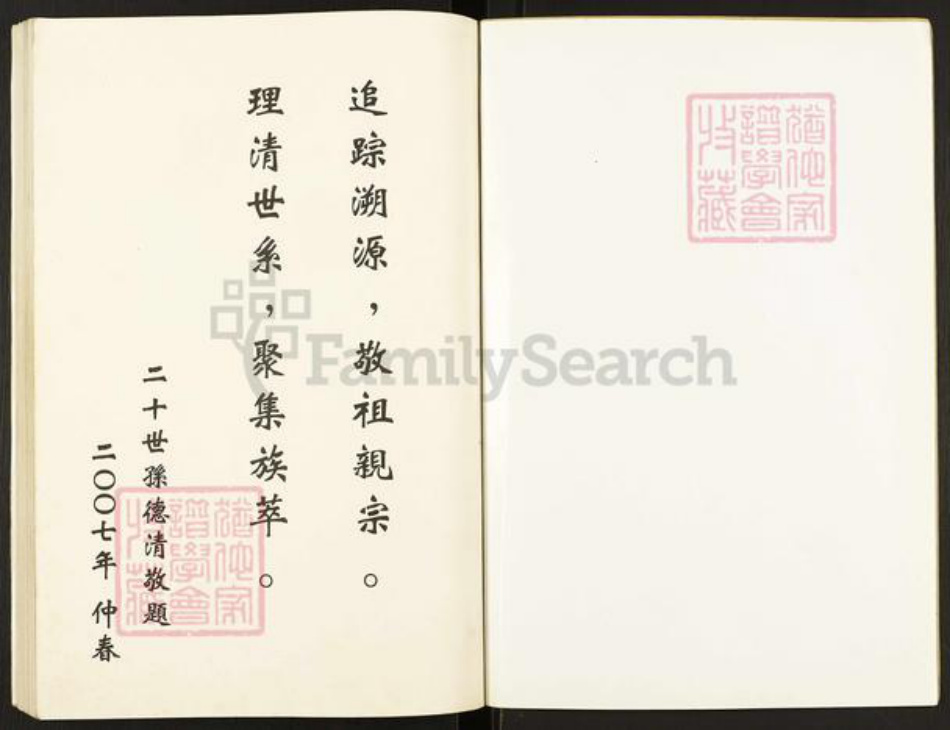 追踪溯源，敬祖親宗。
理清世系，聚集族萃。
二十世孫德清敬題
二〇〇七年仲春
猶他家
譜學會
收藏
猶他家
譜學會
收藏
FamilySearch